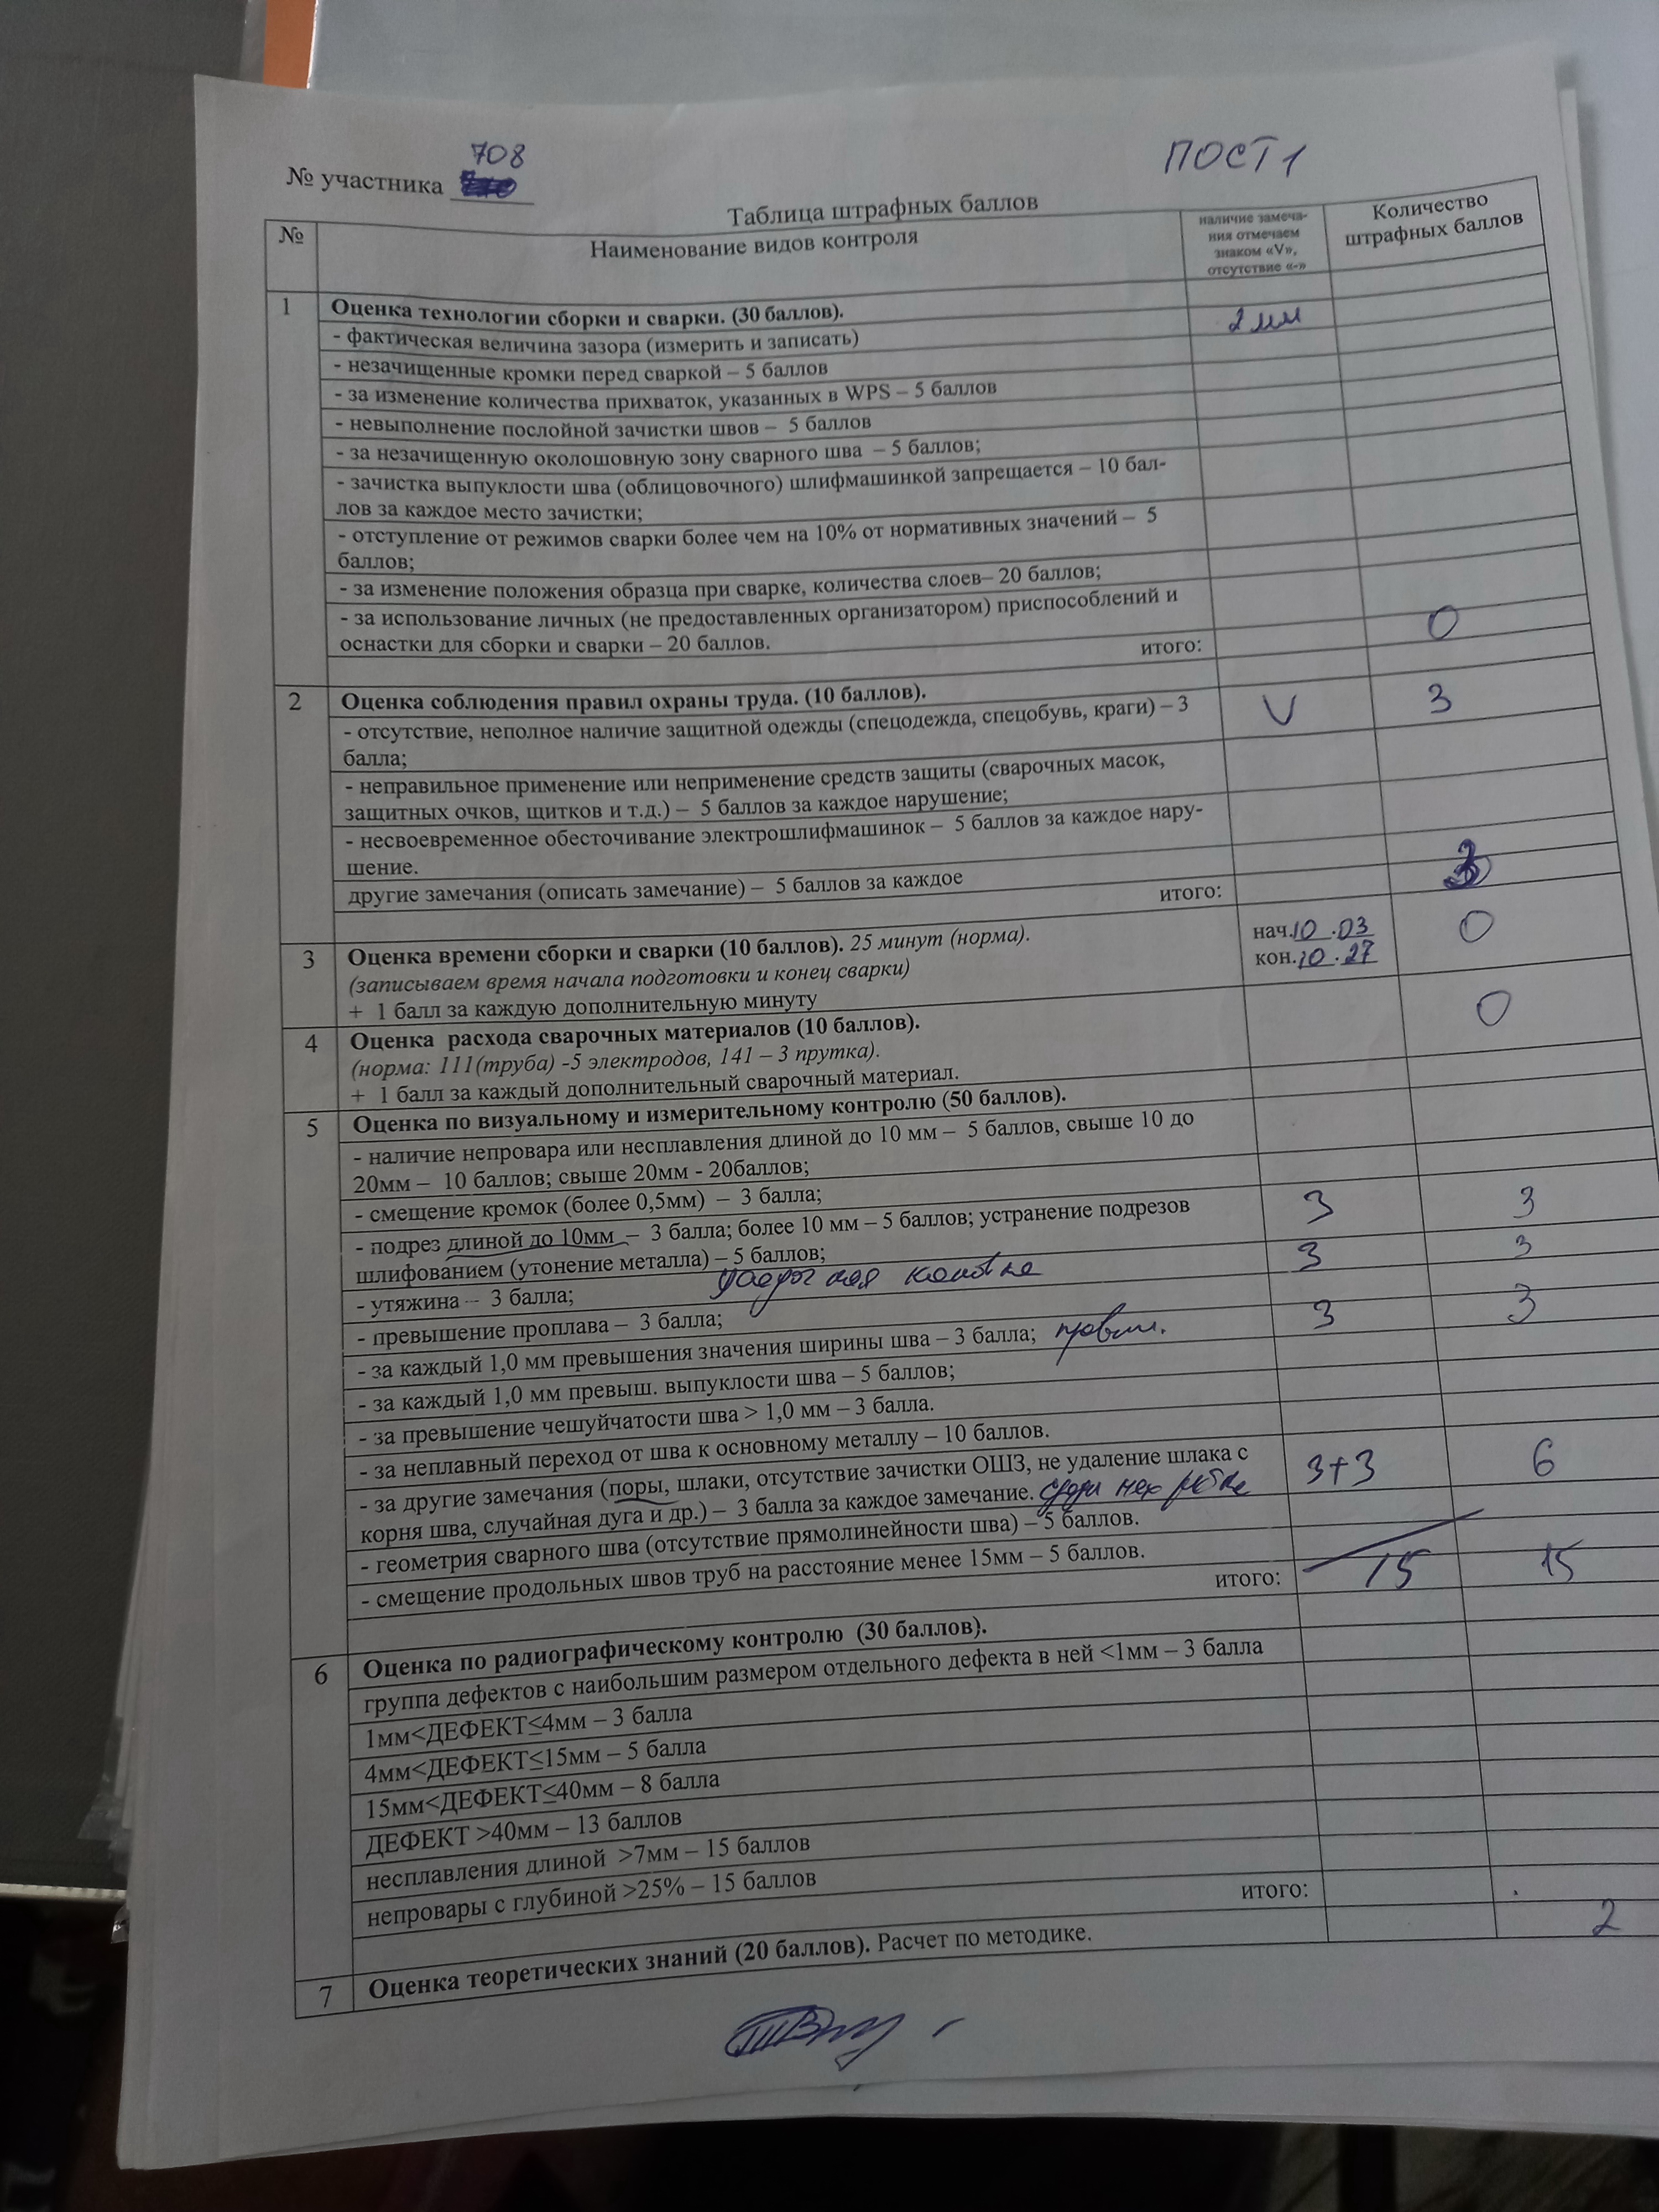 708
ПОСТ 1
№ участника
Таблица штрафных баллов
№
Наименование видов контроля
наличие замеча-
ния отмечаем
знаком «V»,
отсутствие «-»
Количество
штрафных баллов
1
Оценка технологии сборки и сварки. (30 баллов).
- фактическая величина зазора (измерить и записать) 2 мм
- незачищенные кромки перед сваркой – 5 баллов
- за изменение количества прихваток, указанных в WPS – 5 баллов
- невыполнение послойной зачистки швов – 5 баллов
- за незачищенную околошовную зону сварного шва – 5 баллов;
- зачистка выпуклости шва (облицовочного) шлифмашинкой запрещается – 10 бал-
лов за каждое место зачистки;
- отступление от режимов сварки более чем на 10% от нормативных значений – 5
баллов;
- за изменение положения образца при сварке, количества слоев– 20 баллов;
- за использование личных (не предоставленных организатором) приспособлений и
оснастки для сборки и сварки – 20 баллов.
итого: 0
2
Оценка соблюдения правил охраны труда. (10 баллов).
- отсутствие, неполное наличие защитной одежды (спецодежда, спецобувь, краги) – 3 V 3
балла;
- неправильное применение или неприменение средств защиты (сварочных масок,
защитных очков, щитков и т.д.) – 5 баллов за каждое нарушение;
- несвоевременное обесточивание электрошлифмашинок – 5 баллов за каждое нару-
шение.
другие замечания (описать замечание) – 5 баллов за каждое
итого:
3
Оценка времени сборки и сварки (10 баллов). 25 минут (норма). нач. 10.03 0
(записываем время начала подготовки и конец сварки) кон. 10.27
+ 1 балл за каждую дополнительную минуту
4
Оценка расхода сварочных материалов (10 баллов). 0
(норма: 111(труба) -5 электродов, 141 – 3 прутка).
+ 1 балл за каждый дополнительный сварочный материал.
5
Оценка по визуальному и измерительному контролю (50 баллов).
- наличие непровара или несплавления длиной до 10 мм – 5 баллов, свыше 10 до
20мм – 10 баллов; свыше 20мм - 20баллов;
- смещение кромок (более 0,5мм) – 3 балла;
- подрез длиной до 10мм – 3 балла; более 10 мм – 5 баллов; устранение подрезов 3 3
шлифованием (утонение металла) – 5 баллов;
- утяжина – 3 балла; 3 3
- превышение проплава – 3 балла;
- за каждый 1,0 мм превышения значения ширины шва – 3 балла; 3 3
- за каждый 1,0 мм превыш. выпуклости шва – 5 баллов;
- за превышение чешуйчатости шва > 1,0 мм – 3 балла.
- за неплавный переход от шва к основному металлу – 10 баллов.
- за другие замечания (поры, шлаки, отсутствие зачистки ОШЗ, не удаление шлака с 3+3 6
корня шва, случайная дуга и др.) – 3 балла за каждое замечание.
- геометрия сварного шва (отсутствие прямолинейности шва) – 5 баллов.
- смещение продольных швов труб на расстояние менее 15мм – 5 баллов.
итого: 15 15
6
Оценка по радиографическому контролю (30 баллов).
группа дефектов с наибольшим размером отдельного дефекта в ней <1мм – 3 балла
1мм<ДЕФЕКТ≤4мм – 3 балла
4мм<ДЕФЕКТ≤15мм – 5 балла
15мм<ДЕФЕКТ≤40мм – 8 балла
ДЕФЕКТ >40мм – 13 баллов
несплавления длиной >7мм – 15 баллов
непровары с глубиной >25% – 15 баллов
итого:
7
Оценка теоретических знаний (20 баллов). Расчет по методике. 2